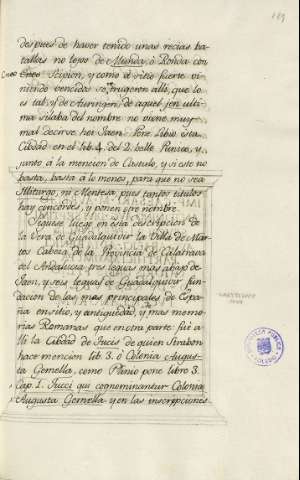 189
despues de haver tenido unas recias ba-
tallas no lejos de Munda, ô Ronda con
Cneo Scipion, y como â sitio fuerte vi-
niendo vencidos se truxeron alli, que lo
es tal, y de Auringen, de aquel jen ulti-
ma silaba del nombre no viene muy
mal decirse hoy Jaen. Pone Libio esta
Cibdad en el lib. 4. del 2. bello Punico, y
junto â la mencion de Castulo, y si esto no
basta, basta â lo menos, para que no sea
Illiturgo, ni Mentesa, pues tantos titulos
hay concordes, y ponen por nombre.
Siguese luego en esta descripcion de
la vera de Guadalquivir la Villa de Mar-
tos Cabeza de la Provincia de Calatrava
del Andalucia tres leguas mas abajo de
Jaen, y seis leguas de Guadalquivir fun-
dacion de las mas principales de Espa-
ña en sitio, y antiguedad, y mas memo-
rias Romanas que en otra parte fue â
lli la Cibdad de Tucis de quien Strabon
hace mencion lib. 3. ô Colonia Augus-
ta Gemella, como Plinio pone libro 3.
Cap. 1. Tucci qui cognominantur Colonia
Augusta Gemella y en las inscripciones